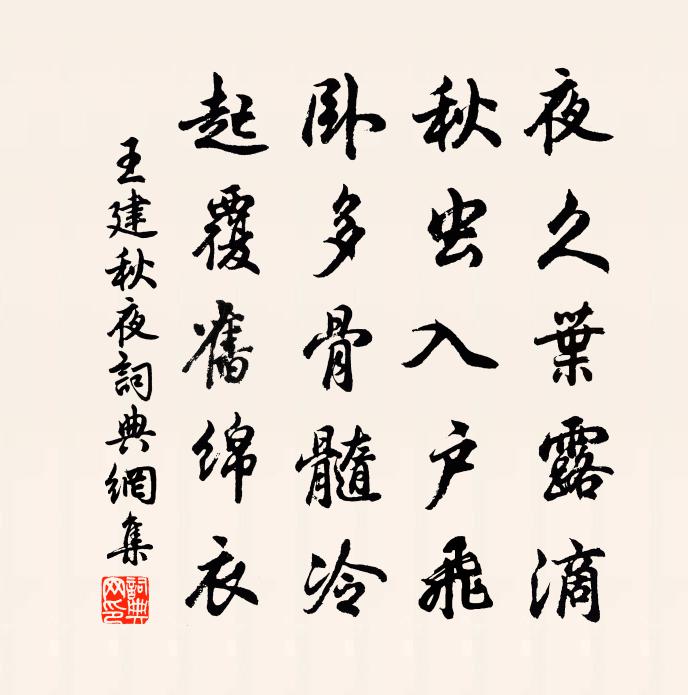 夜久葉露滴
秋虫入户飛
卧多骨髓冷
起覆舊綿衣
王建秋夜詞典網集
詞典網印